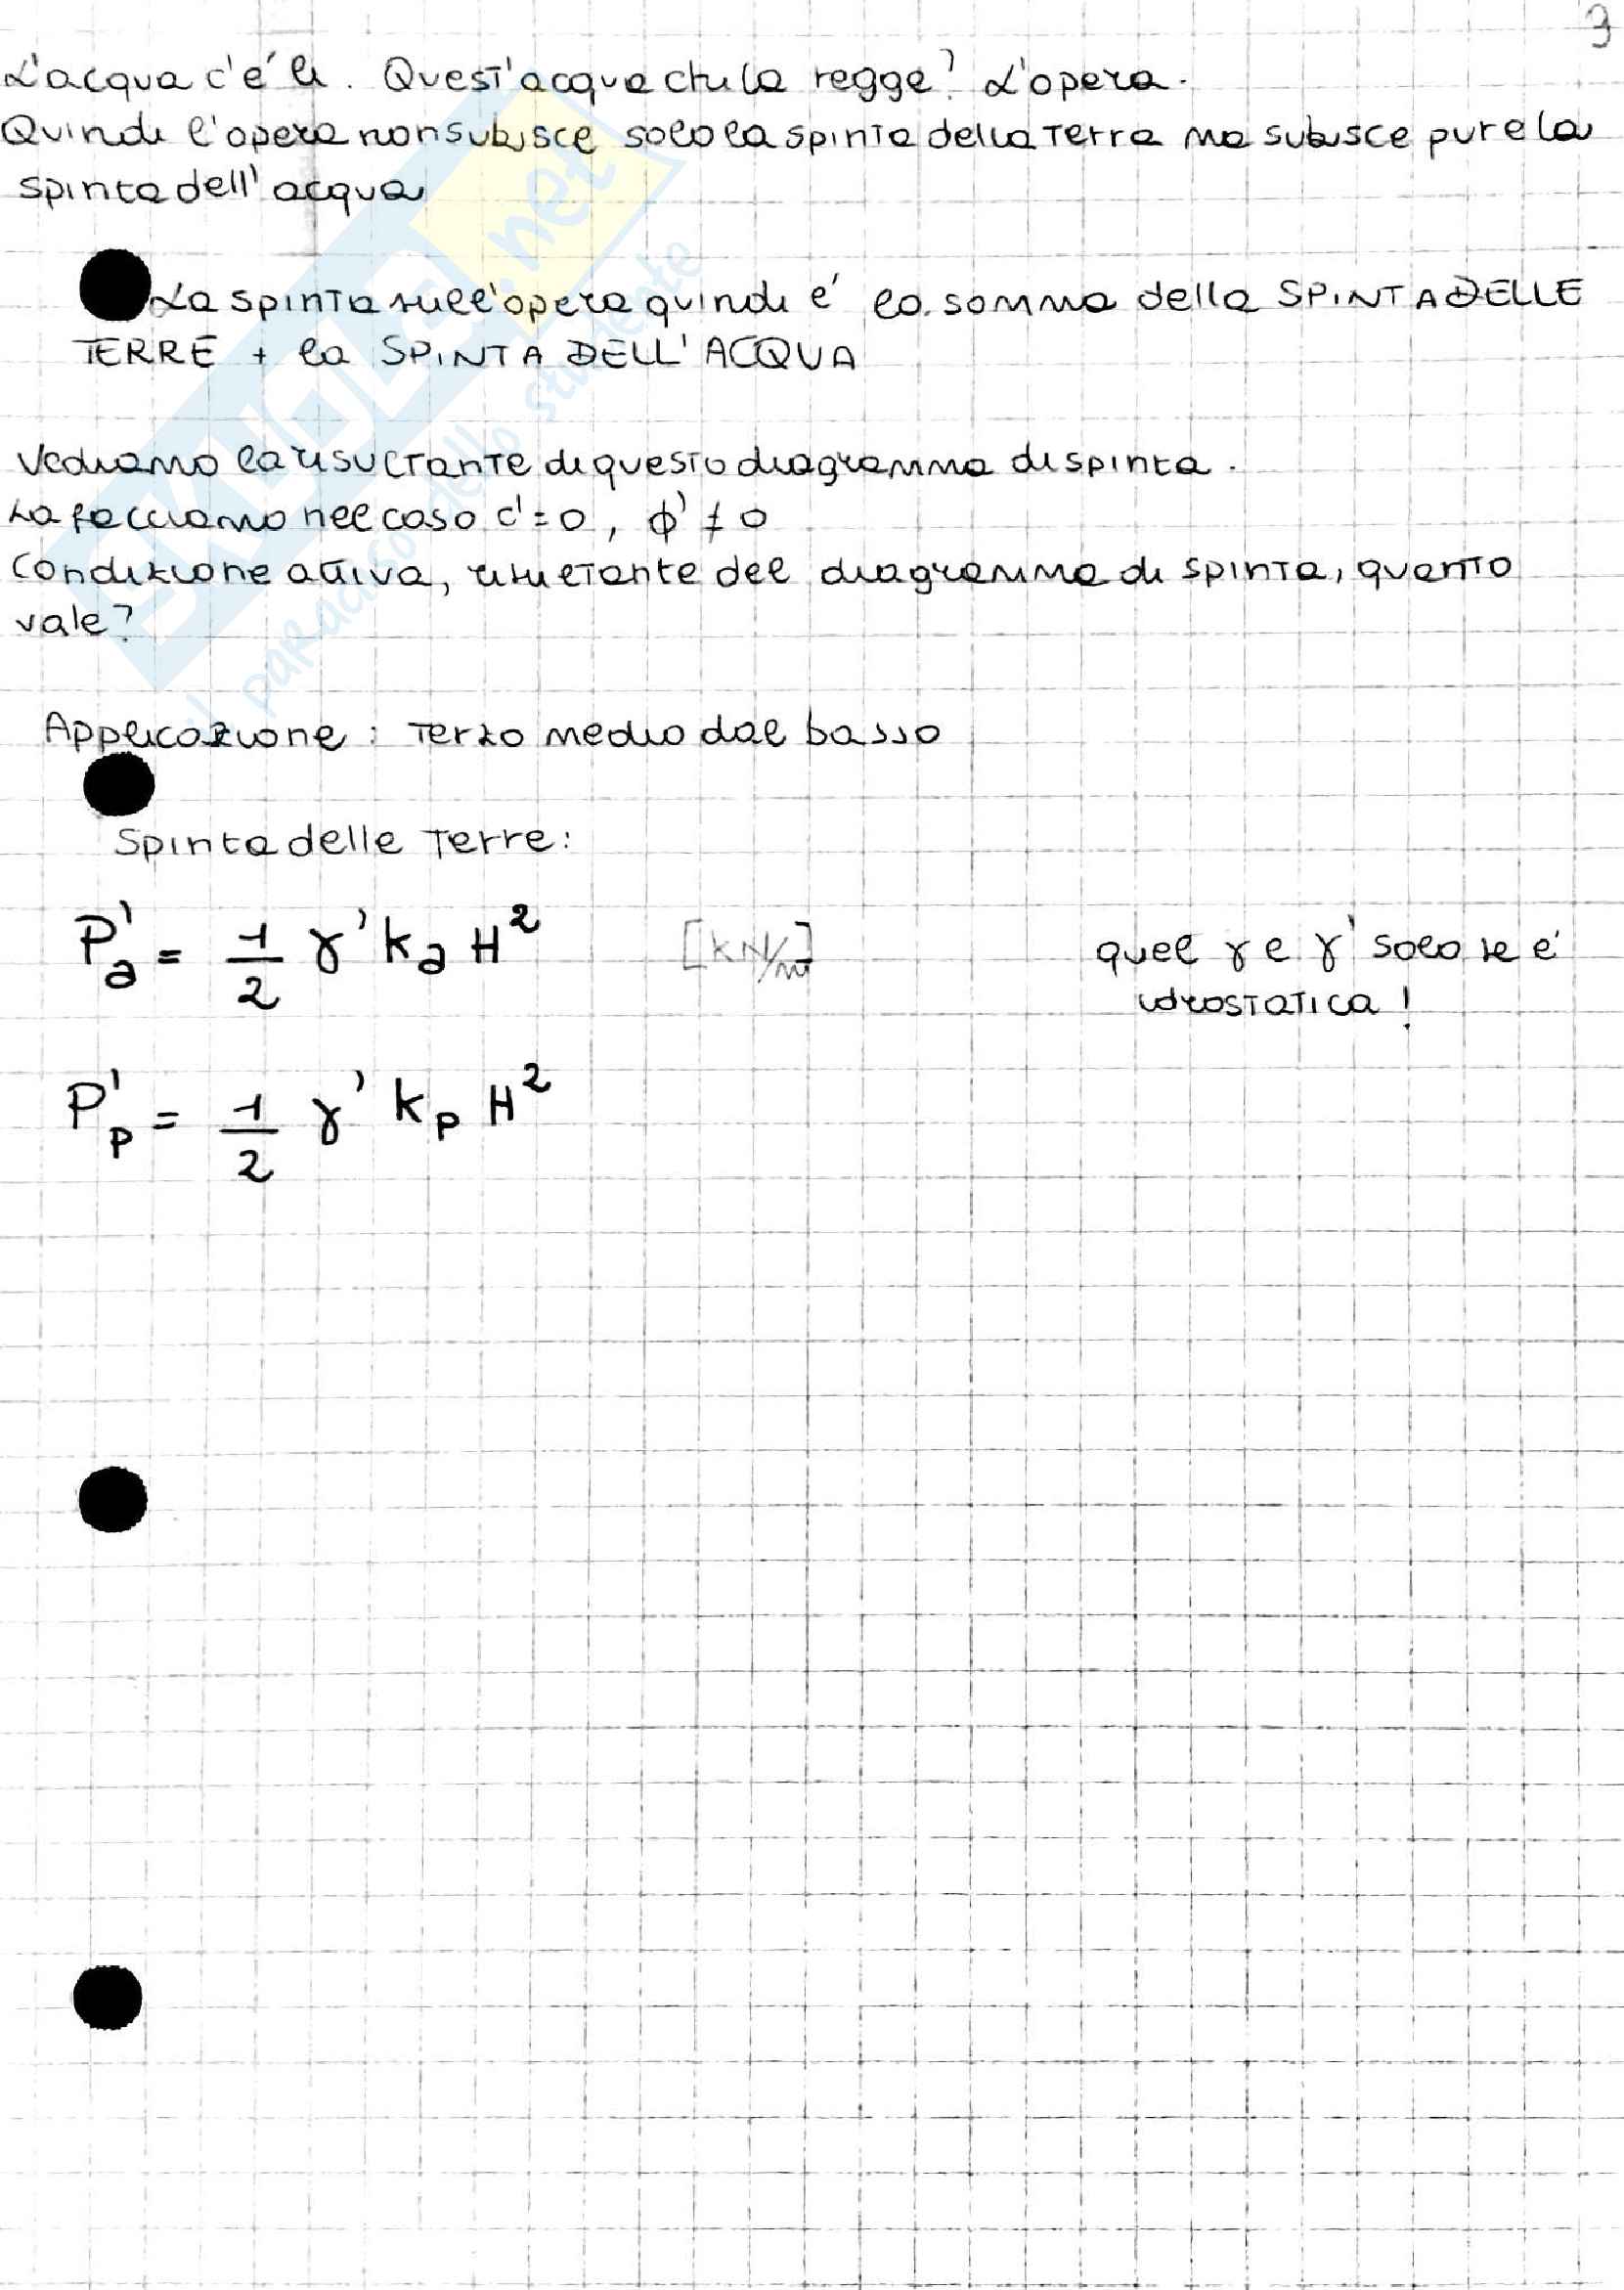 3
L'acqua c'é lì. Quest'acqua chi la regge? L'opera.
Quindi l'opera non subisce solo la spinta della terra ma subisce pure la
spinta dell'acqua
La spinta sull'opera quindi é la somma della SPINTA DELLE
TERRE + la SPINTA DELL'ACQUA
Vediamo la risultante di questo diagramma di spinta.
La facciamo nel caso c'=0, φ' ≠ 0
Condizione attiva, risultante del diagramma di spinta, quanto
vale?
Applicazione: Terzo medio dal basso
Spinta delle Terre:
P'a = 1/2 γ' ka H² [kN/m] quel γ e γ' solo se é
idrostatica!
P'p = 1/2 γ' kp H²
SKUOLA.net
il paradiso dello studente